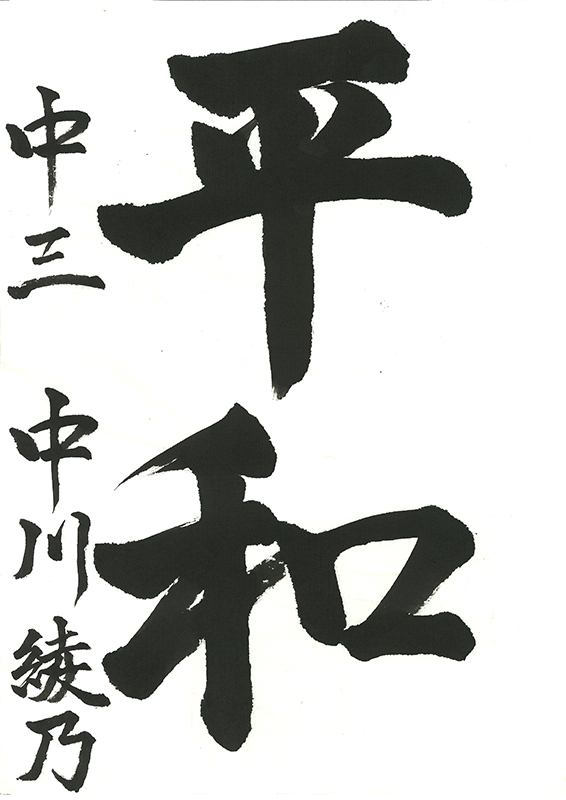 平和
中三 中川綾乃